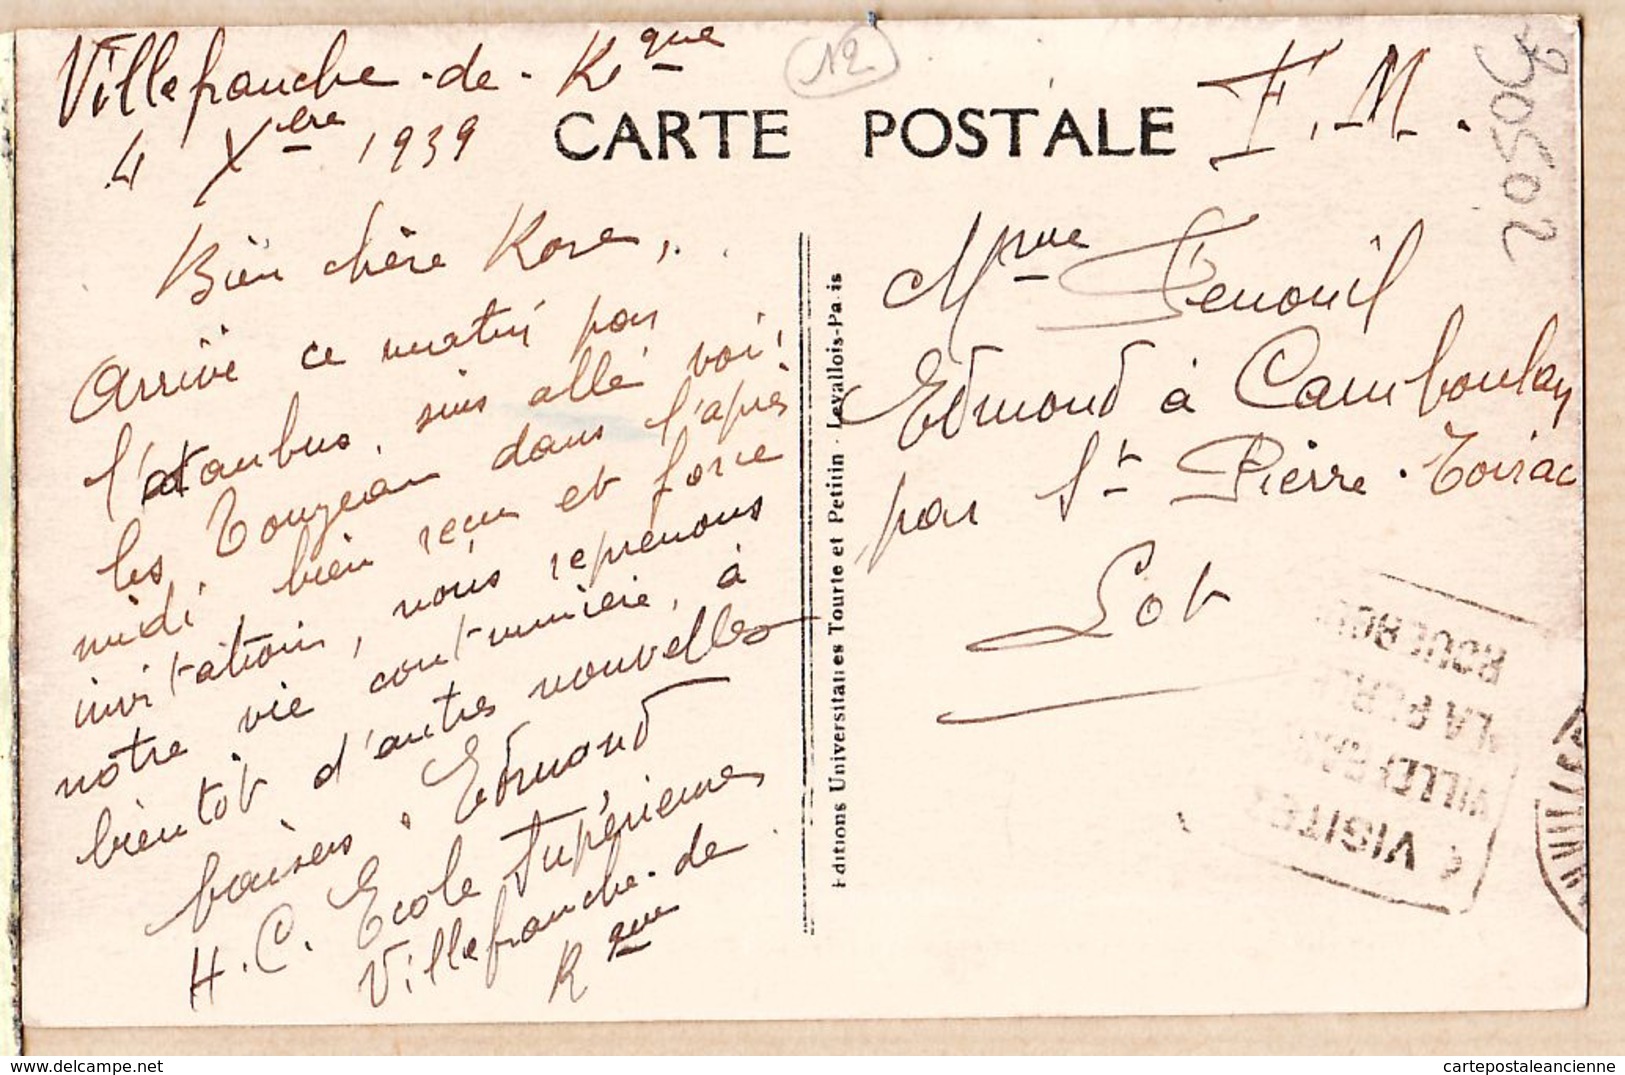 Villefranche-de-Rgue
4 Xbre 1939
12
CARTE POSTALE
F.M.
20502
Bien chère Rose,
Arrivé ce matin par
l'autobus, suis allé voir
les Tougeau dans l'après
midi, bien reçu et force
invitations, nous reprenons
notre vie coutumière, à
bientôt d'autres nouvelles
baisers. Edmond
H.C. Ecole Supérieure
Villefranche-de
Rgue
Editions Universitaires Tourte et Petitin - Levallois-Paris
Mme Fenouil
Edmond à Camboulan
par St Pierre-Toirac
Lot
VISITEZ
VILLEFRAN
LA PERLE
ROUERGUE
cartepostaleancienne
delcampe.net